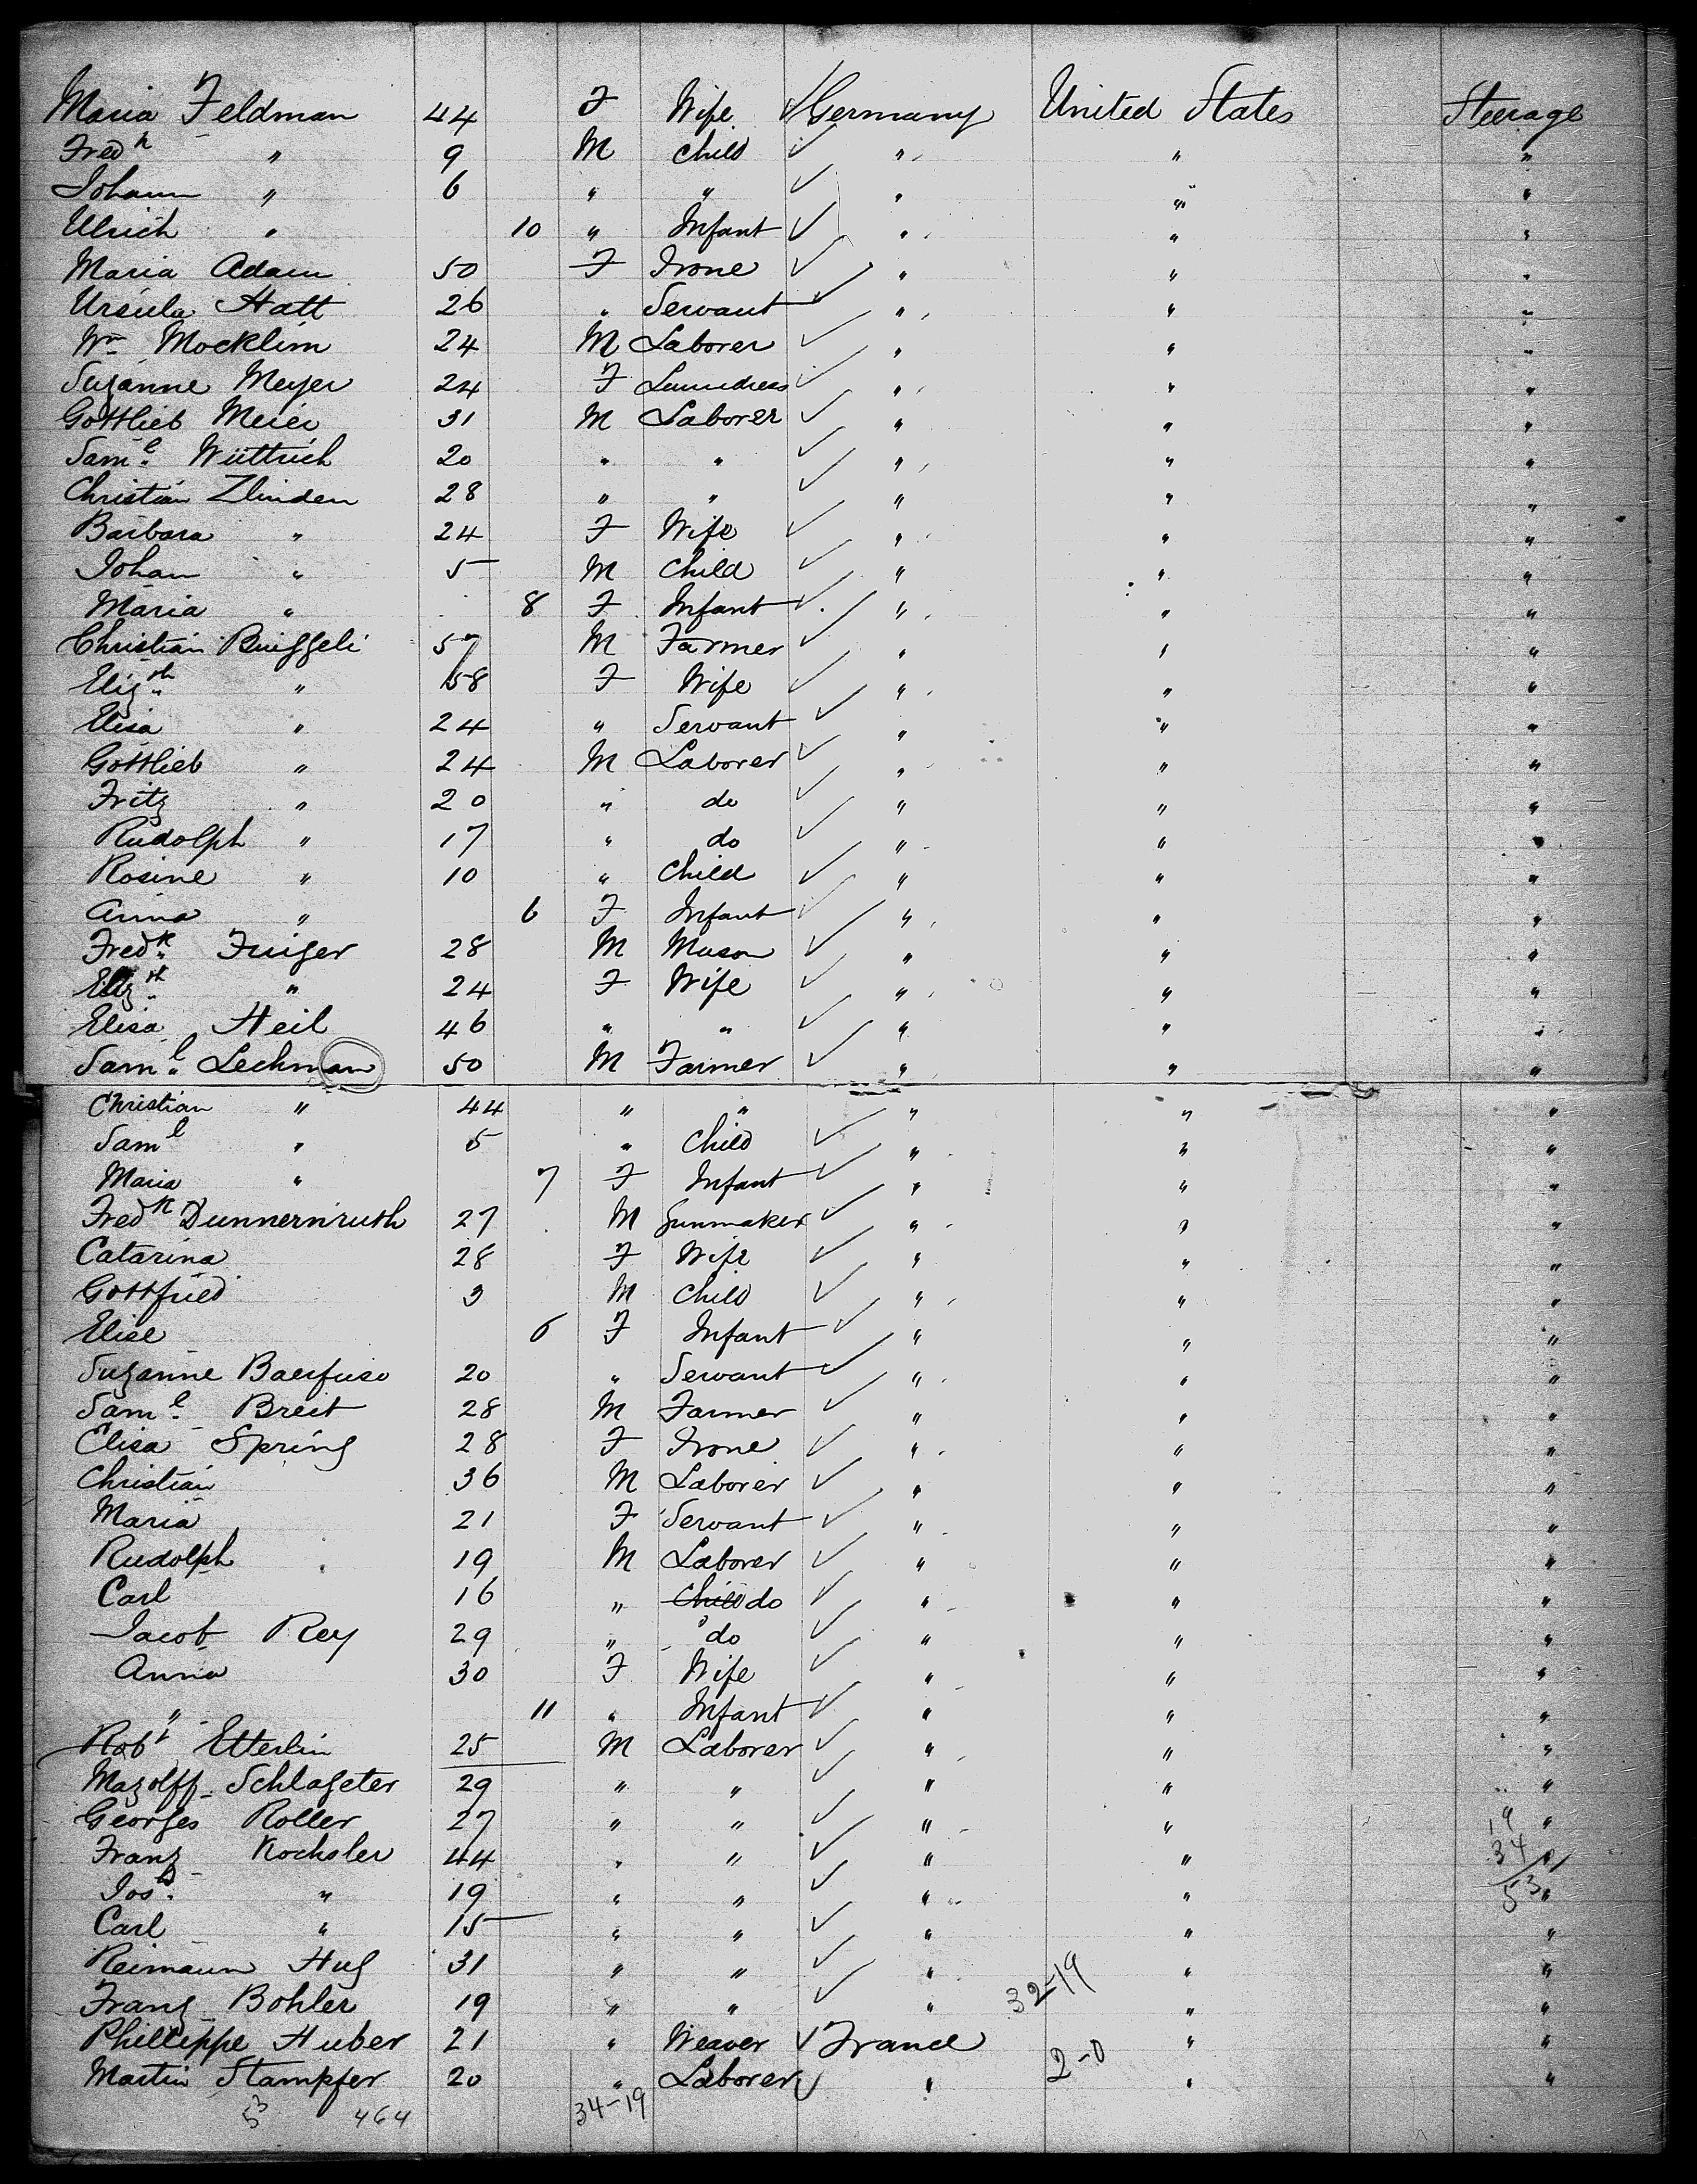 Maria Feldman 44 F Wife ✓ Germany United States Steerage
Fredk " 9 M Child ✓ " " "
Johann " 6 " " ✓ " " "
Ulrich " 10 " Infant ✓ " " "
Maria Adam 50 F None ✓ " " "
Ursula Hatt 26 " Servant ✓ " " "
Wm Mocklim 24 M Laborer ✓ " " "
Suzanne Meyer 24 F Laundress ✓ " " "
Gottlieb Meier 31 M Laborer ✓ " " "
Saml. Wüttrich 20 " " ✓ " " "
Christian Zlinden 28 " " ✓ " " "
Barbara " 24 F Wife ✓ " " "
Johan " 5 M Child ✓ " " "
Maria " 8 F Infant ✓ " " "
Christian 57 M Farmer ✓ " " "
Elizth " 58 F Wife ✓ " " "
Elisa " 24 " Servant ✓ " " "
Gottlieb " 24 M Laborer ✓ " " "
Fritz " 20 " do ✓ " " "
Rudolph " 17 " do ✓ " " "
Rosine " 10 " Child ✓ " " "
Anna " 6 F Infant ✓ " " "
Fredk. 28 M Mason ✓ " " "
Elizth " 24 F Wife ✓ " " "
Elisa Heil 46 " " ✓ " " "
Saml. Lechman 50 M Farmer ✓ " " "
Christian " 44 " " ✓ " " "
Saml " 5 " Child ✓ " " "
Maria " 7 F Infant ✓ " " "
Fredk Dunnernruth 27 M Gunmaker ✓ " " "
Catarina 28 F Wife ✓ " " "
Gottfried 3 M Child ✓ " " "
Elise 6 F Infant ✓ " " "
Suzanne Baerfuso 20 " Servant ✓ " " "
Saml. Breit 28 M Farmer ✓ " " "
Elisa Spring 28 F None ✓ " " "
Christian 36 M Laborer ✓ " " "
Maria 21 F Servant ✓ " " "
Rudolph 19 M Laborer ✓ " " "
Carl 16 " Child do ✓ " " "
Jacob Rey 29 " do ✓ " " "
Anna 30 F Wife ✓ " " "
" 11 " Infant ✓ " " "
Robt Etterlin 25 M Laborer ✓ " " "
Mazolff Schlageter 29 " " ✓ " " "
Georges Roller 27 " " ✓ " " 19 "
Franz Kochsler 44 " " ✓ " " 34 "
Josh. " 19 " " ✓ " " 53 "
Carl " 15 " " ✓ " " "
Reimann Hug 31 " " ✓ " " "
Franz Bohler 19 " " ✓ " 32-19 " "
Philleppe Huber 21 " Weaver ✓ France " "
Martin Stampfer 20 " Laborer ✓ " 2-0 " "
53 464 34-19